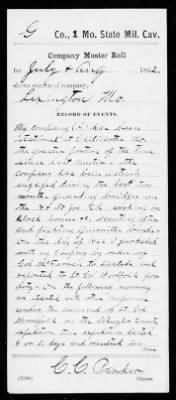 G Co., 1 Mo. State Mil. Cav.
Company Muster Roll
for July & Aug, 1862,
shows station of company,
Lexington Mo.
RECORD OF EVENTS.
My company (G) has been
stationed at Chillicothe Mo.
the greater portion of the time
since last muster - the
company has been actively
engaged during the last two
months guarding bridges on
the H. & St Jo R.R. working on
block houses &c, scouting after
and fighting Guerrilla bands -
On the day of I proceeded
with my Company by order of
Col to and
reported to Lt Col for
duty - On the following morning
we started with other companies
under the command of Lt Col
on the
expedition this expedition lasted
8 or 10 days and resulted in
C. C.
Copyist.